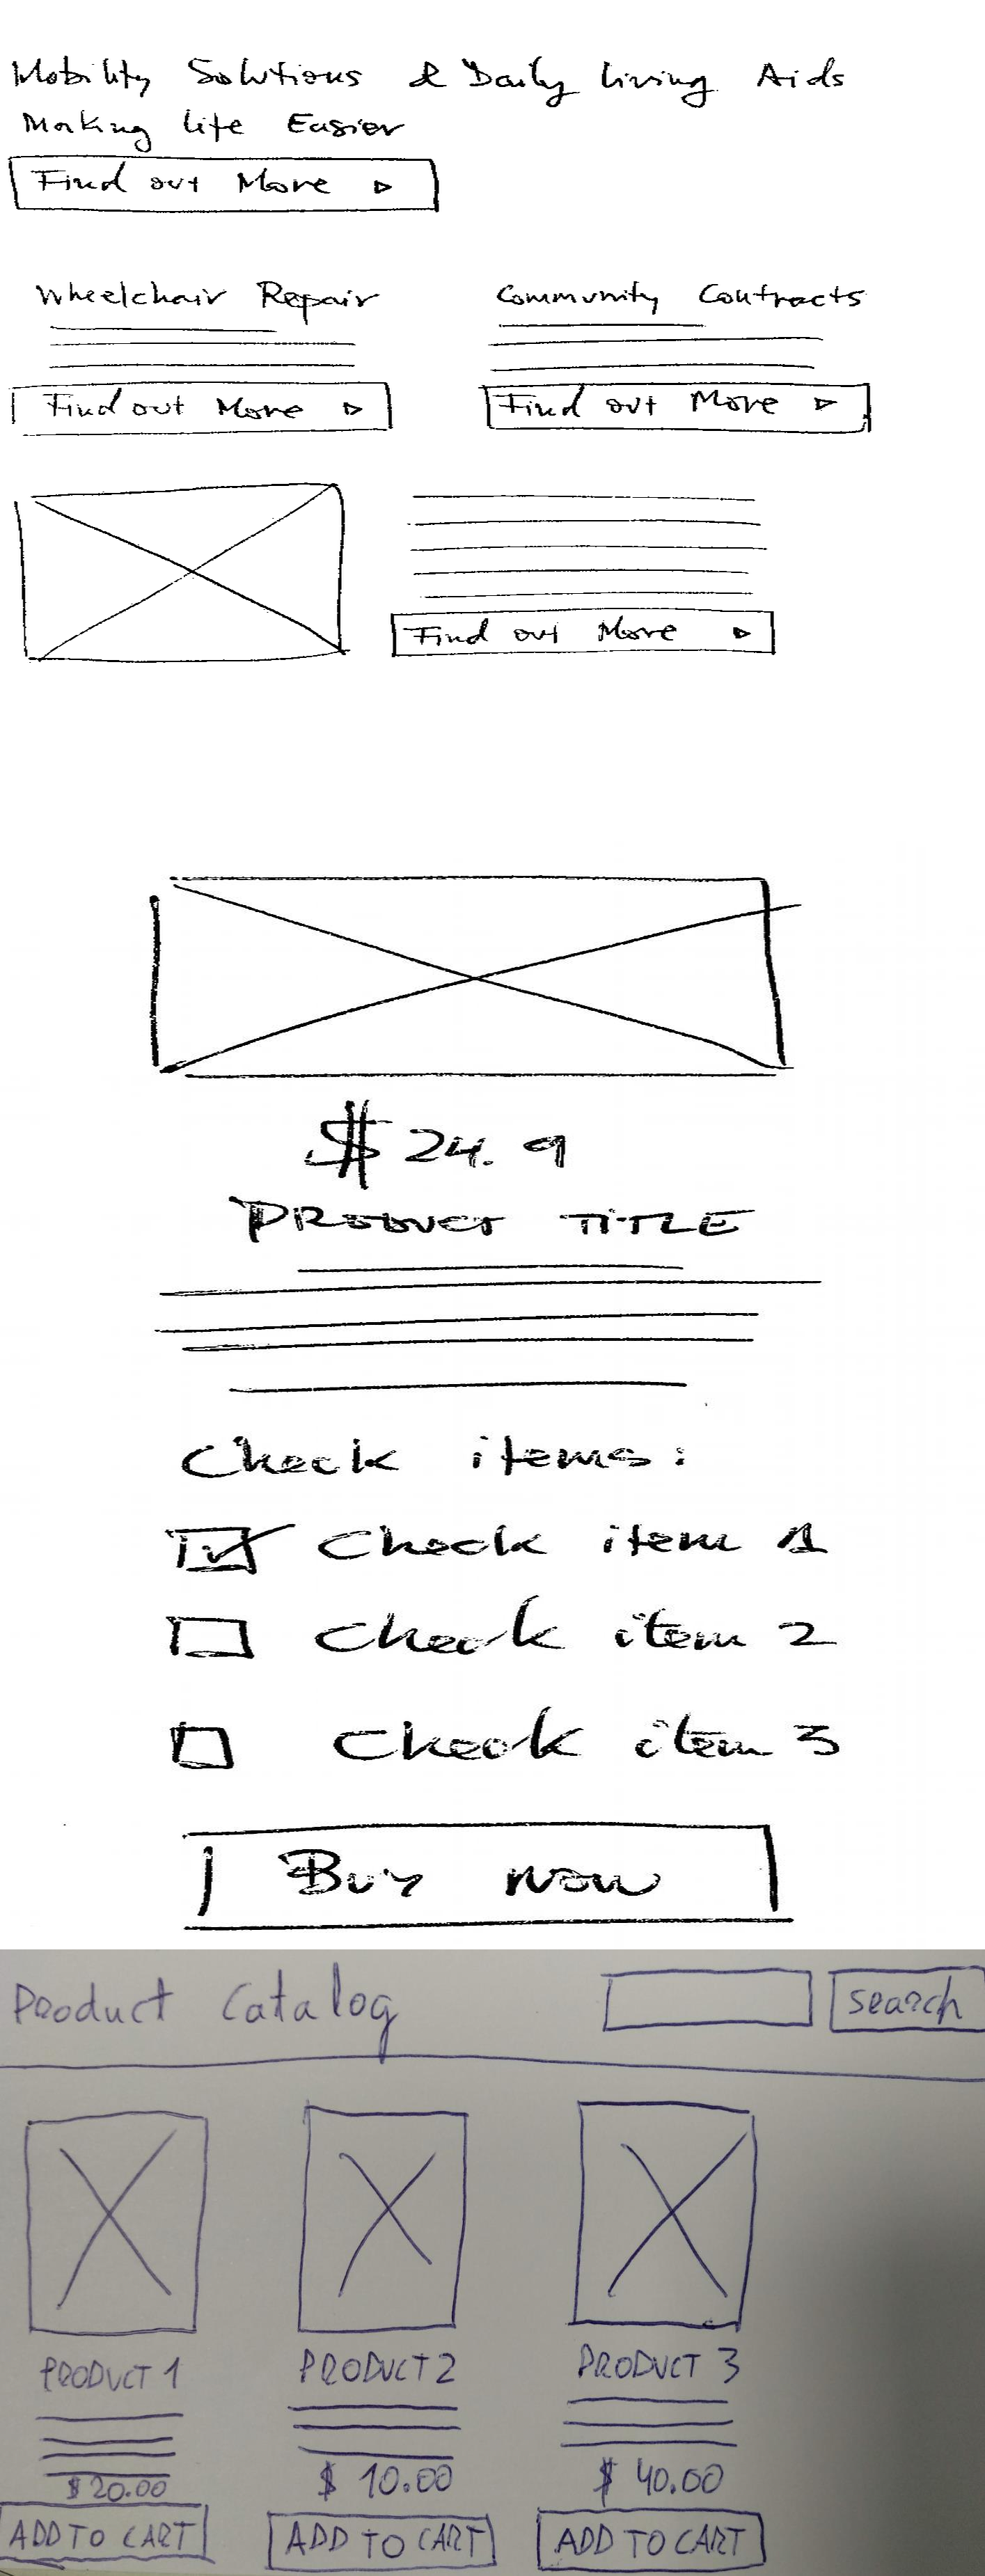 Mobility Solutions & Daily living Aids
Making life Easier
Find out More ▷
Wheelchair Repair
Community Contracts
Find out More ▷
Find out More ▷
Find out More ▷
$ 24.9
PRODUCT TITLE
Check items:
Check item 1
Check item 2
Check item 3
Buy now
Product Catalog
search
PRODUCT 1
PRODUCT 2
PRODUCT 3
$ 20.00
$ 10.00
$ 40.00
ADD TO CART
ADD TO CART
ADD TO CART